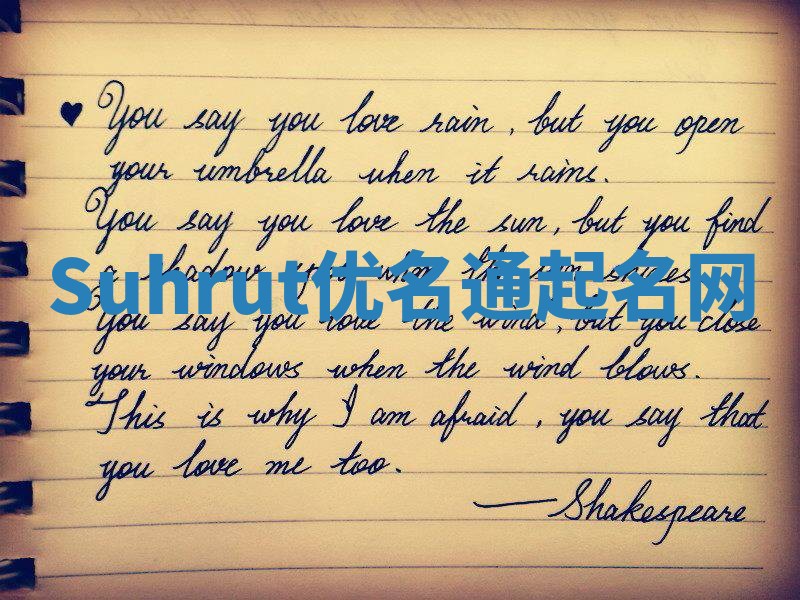 ♥ You say you love rain, but you open
your umbrella when it rains.
You say you love the sun, but you find
a shadow spot when the sun shines.
Suhrut优名通起名网
You say you love the wind, but you close
your windows when the wind blows.
This is why I am afraid, you say that
you love me too.
—Shakespeare